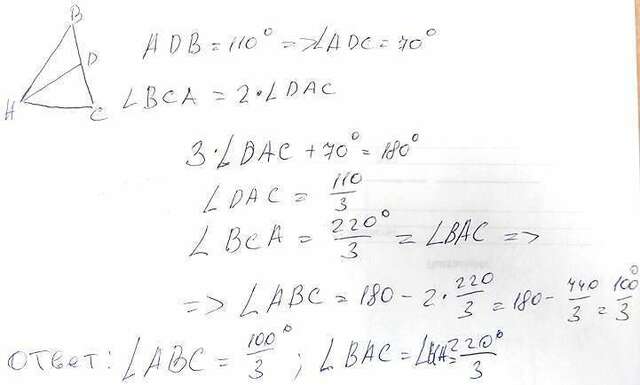 B
ADB = 110° => ∠ADC = 70°
D
H
C
∠BCA = 2·∠DAC
3·∠DAC + 70° = 180°
∠DAC = 110/3
∠BCA = 220°/3 = ∠BAC =>
=> ∠ABC = 180 - 2·220/3 = 180 - 440/3 = 100°/3
Ответ: ∠ABC = 100°/3 ; ∠BAC = 220°/3